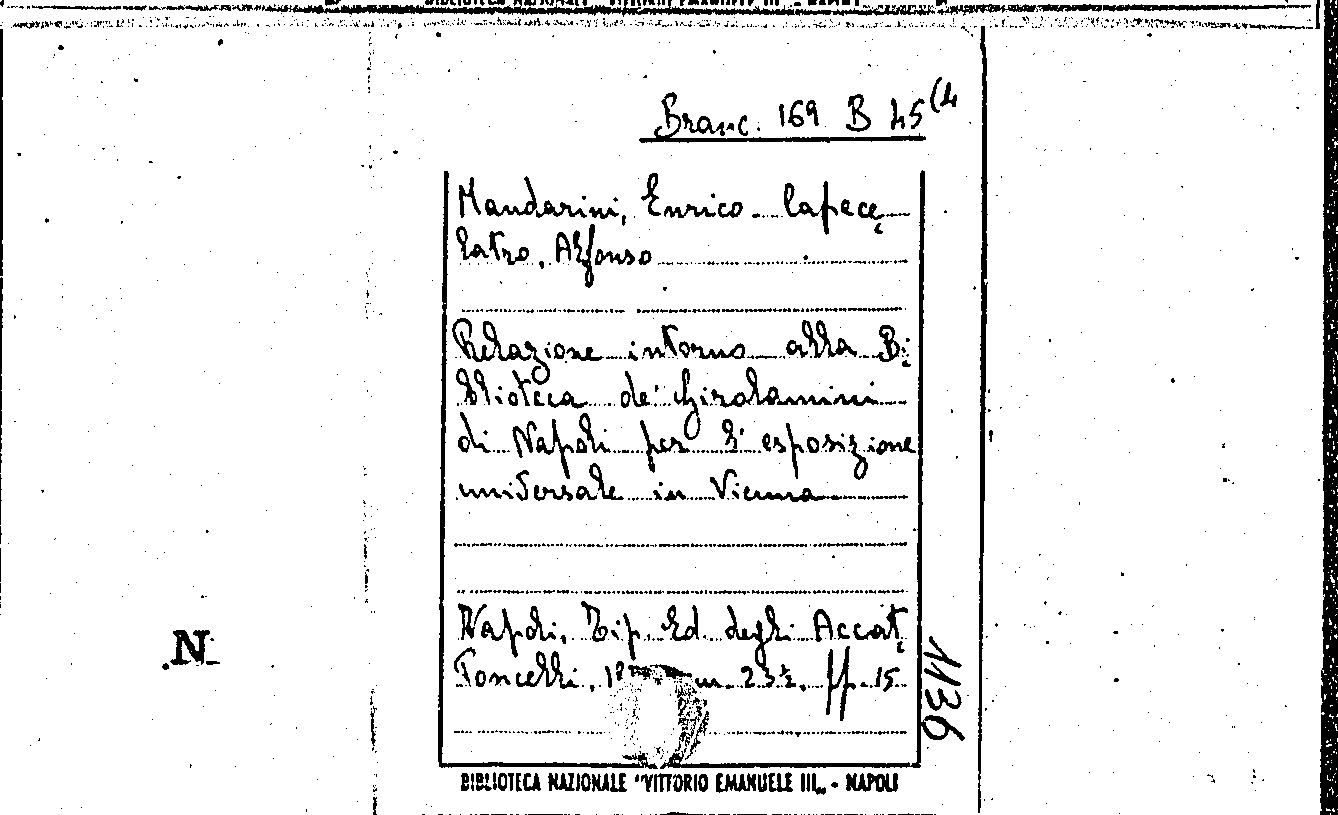 BIBLIOTECA NAZIONALE "VITTORIO EMANUELE III" - NAPOLI
Branc. 169 B 45(4
Mandarini, Enrico - Capece
Latro, Alfonso
Relazione intorno alla Bi
blioteca de' Girolamini
di Napoli per l'esposizione
universale in Vienna
Napoli, Tip. Ed. degli Accat
toncelli, cm. 23½, pp. 15
1136
N
BIBLIOTECA NAZIONALE "VITTORIO EMANUELE III„ - NAPOLI